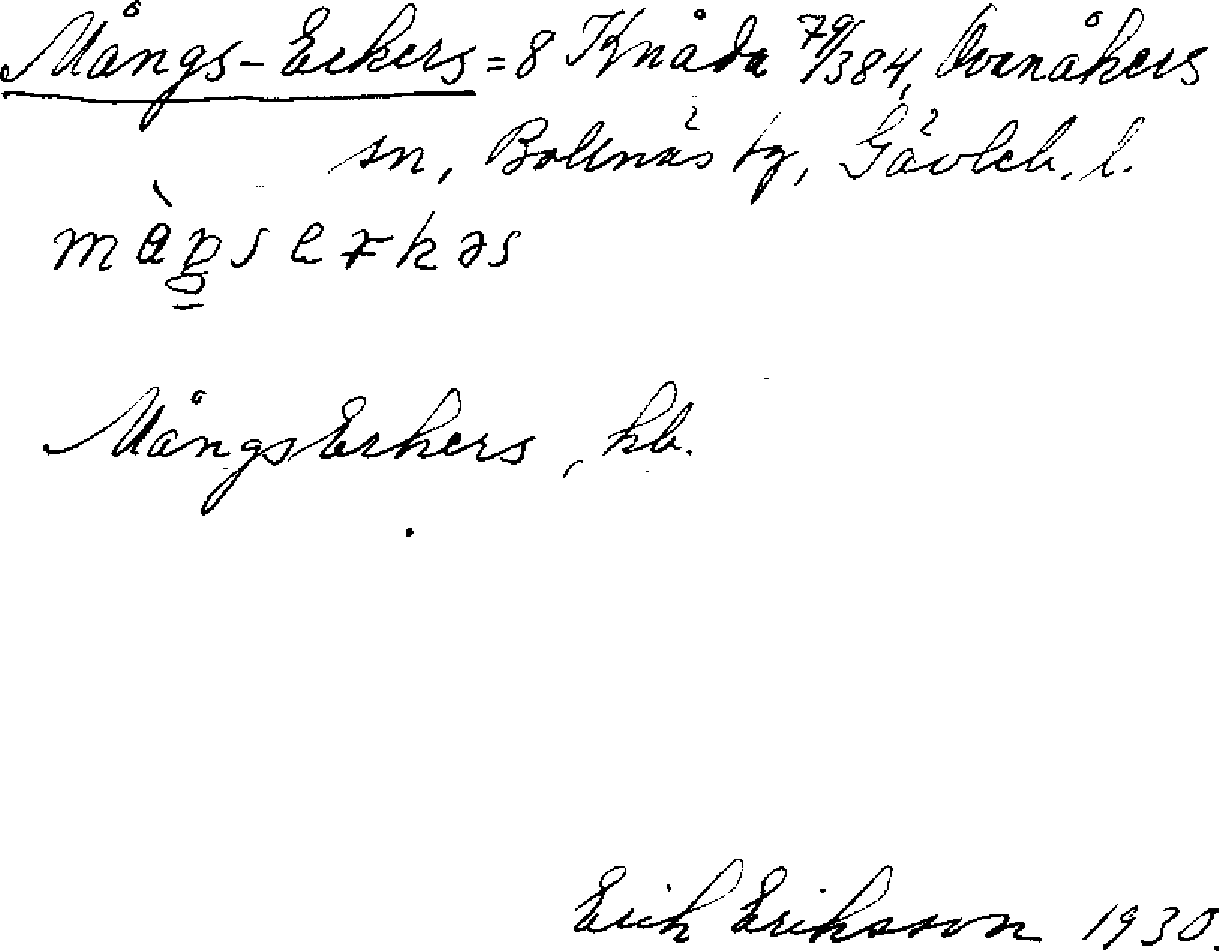 Mångs-Erkers = 8 Knåda 79/384, Ovanåkers
sn, Bollnäs tg, Gävleb. l.
Mångs Erkers, kb.
Erik Eriksson 1930.